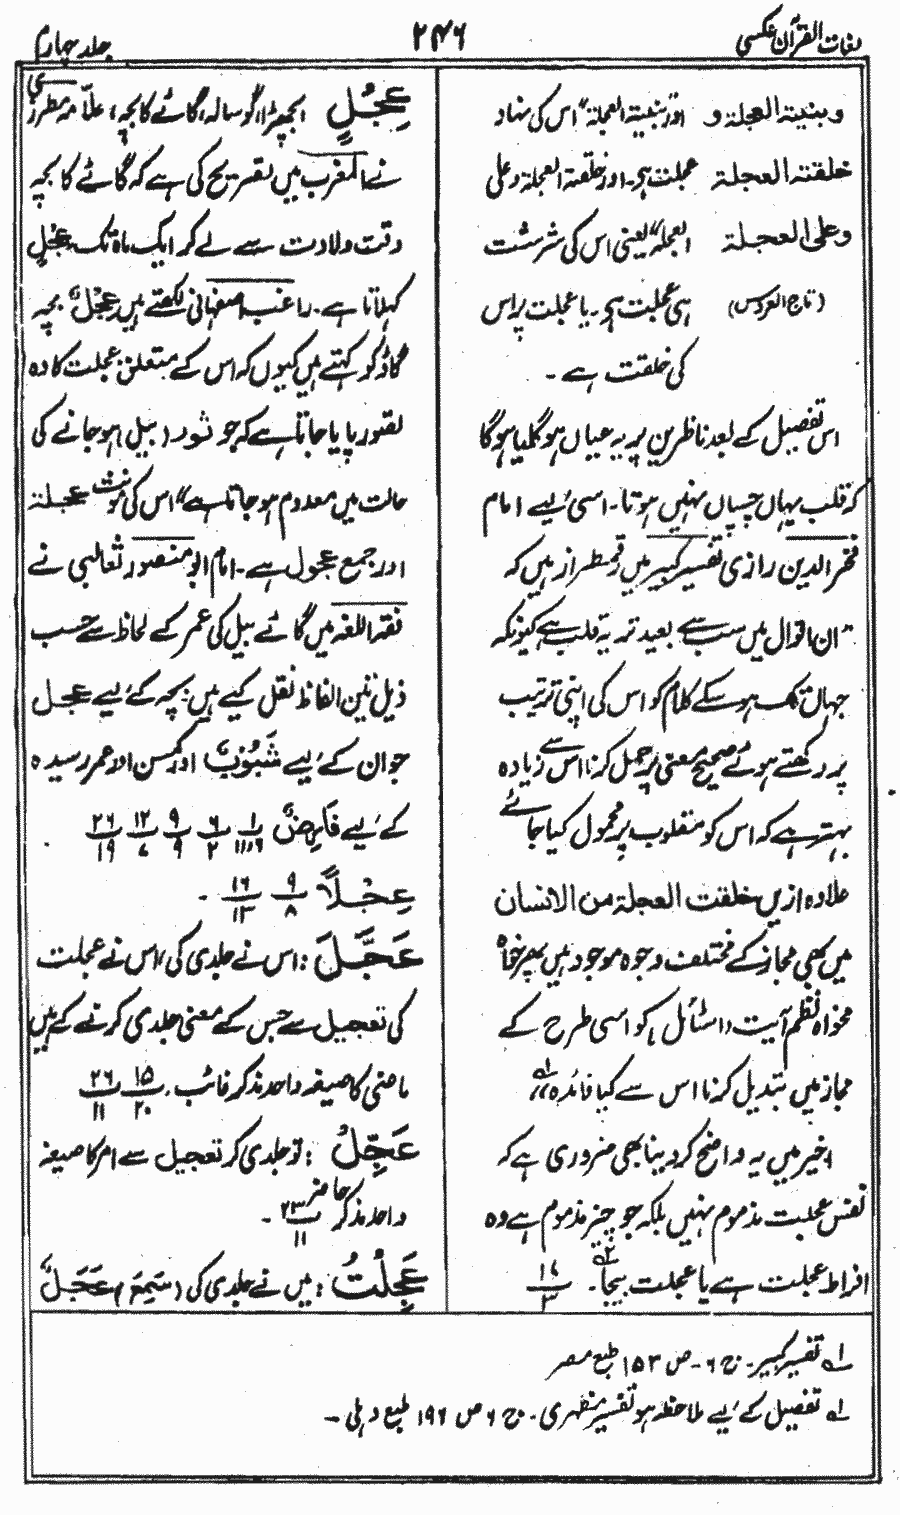 لغات القرآن عکسی
۲۴۶
جلد چہارم
وبنیتہ العجلة و اور بنیتہ العجلة" اس کی نہاد
خلقتہ العجلة عجلت ہی۔ اور خلقتہ العجلة وعلی
وعلی العجلة العجلة" یعنی اس کی سرشت
(تاج العروس) ہی عجلت ہی۔ یا عجلت پر اس
کی خلقت ہے۔
اس تفصیل کے بعد ناظرین پر یہ عیاں ہو گیا ہو گا
کہ قلب یہاں چسپاں نہیں ہوتا۔ اسی لیے امام
فخر الدین رازی تفسیر کبیر میں رقمطراز ہیں کہ
"ان اقوال میں سب سے بعید تر یہ قلب ہے کیونکہ
جہاں تک ہو سکے کلام کو اس کی اپنی ترتیب
پر رکھتے ہوئے صحیح معنی پر حمل کرنا اس سے زیادہ
بہتر ہے کہ اس کو مقلوب پر محمول کیا جائے
علاوہ ازیں خلقت العجلة من الانسان
میں بھی مجاز کے مختلف وجوہ موجود ہیں پھر خواہ
مخواہ نظم آیت کو اسی طرح کے
مجاز میں تبدیل کرنا اس سے کیا فائدہ"
اخیر میں یہ واضح کر دینا بھی ضروری ہے کہ
نفس عجلت مذموم نہیں بلکہ جو چیز مذموم ہے وہ
افراط عجلت ہے یا عجلت بیجا۔ ۱۷ ۳
عِجْلٍ بچھڑا، گوسالہ، گائے کا بچہ، علامہ مطرزی
نے المغرب میں تصریح کی ہے کہ گائے کا بچہ
وقت ولادت سے لے کر ایک ماہ تک عِجْلٍ
کہلاتا ہے۔ راغب اصفہانی لکھتے ہیں عِجْلٌ بچہ
گاؤ کو کہتے ہیں کیوں کہ اس کے متعلق عجلت کا وہ
تصور پایا جاتا ہے کہ جو ثور (بیل) ہو جانے کی
حالت میں معدوم ہو جاتا ہے" اس کی مونث عجلة
اور جمع عجول ہے۔ امام ابو منصور ثعالبی نے
فقہ اللغہ میں گائے بیل کی عمر کے لحاظ سے حسب
ذیل تین الفاظ نقل کیے ہیں۔ بچہ کے لیے عجل
جوان کے لیے شَبُوبٌ اور کمسن اور عمر رسیدہ
کے لیے فَارِضٌ ۱ ۱۱،۱۶ ۶ ۲ ۹ ۹ ۱۲ ۷ ۲۶ ۱۹
عِجْلًا ۹ ۸ ۱۶ ۱۳ ۔
عَجَّلَ : اس نے جلدی کی، اس نے عجلت
کی تعجیل سے جس کے معنی جلدی کرنے کے ہیں
ماضی کا صیغہ واحد مذکر غائب۔ ۱۵ ۲۰ ۲۶ ۱۱
عَجِّلْ : تو جلدی کر تعجیل سے امر کا صیغہ
واحد مذکر حاضر ۲۳ ۱۱ ۔
عَجِلْتُ : میں نے جلدی کی (سَمِعَ) عَجَلٌ
لہ تفسیر کبیر۔ ج ۶۔ ص ۱۵۳ طبع مصر
لہ تفصیل کے لیے ملاحظہ ہو تفسیر مظہری۔ ج ۶ ص ۱۹۶ طبع دہلی۔